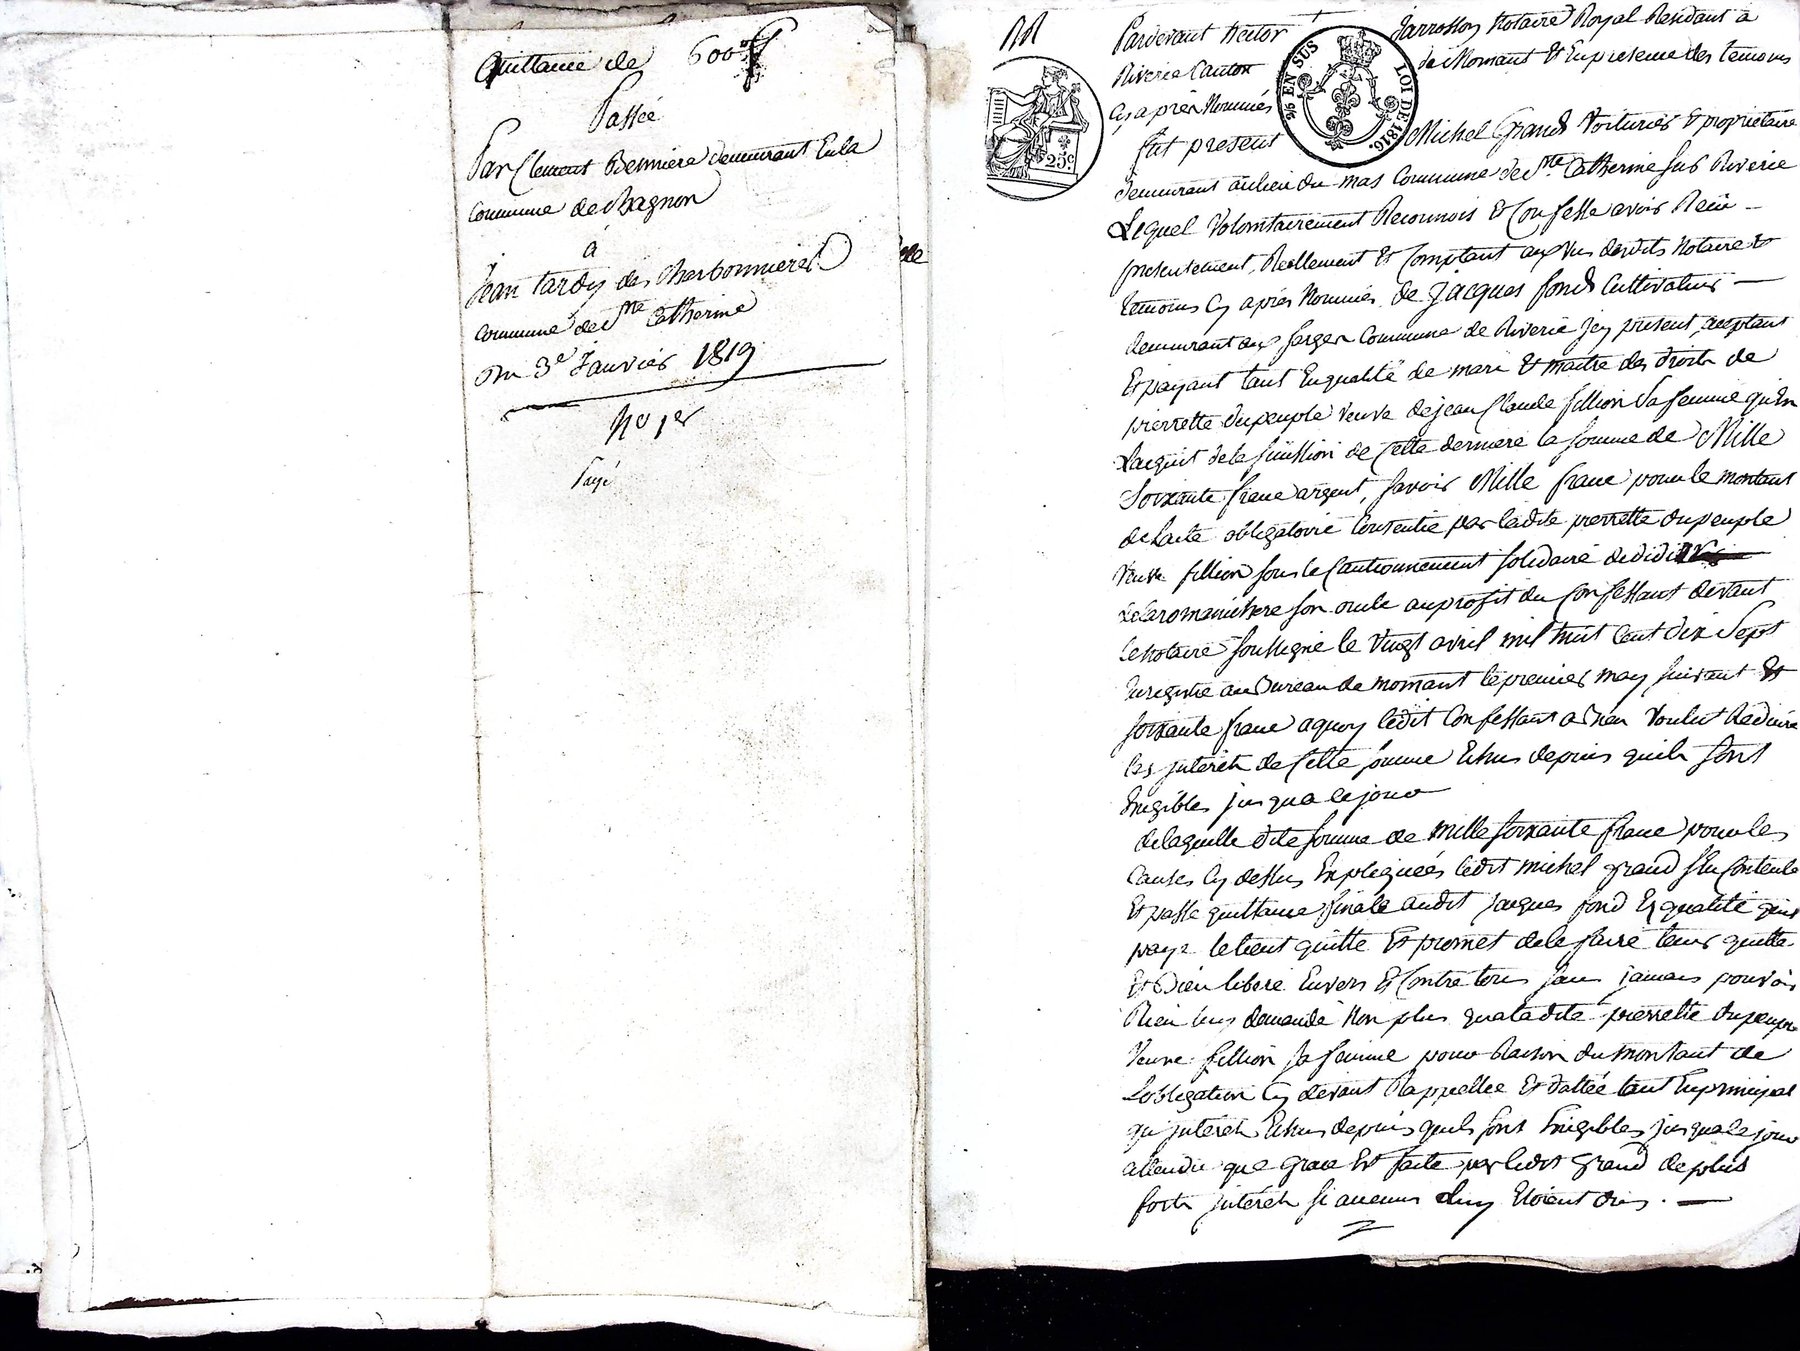 Quittance de 600 f
Passée
Par Clement Bernniere demeurant En la
Commune de Chagnon
à
Jean tardy des Charbonnieres
Commune de Ste Catherine
Du 3e Janvier 1819
No 1er
Payé
Pardevant hector Jarrosson Notaire Royal Residant à
Riverie Canton de Mornant Et En presence des temoins
Cy après Nommés
25 c.
EN SUS
LOI DE 1816.
fut present Michel Grand Voiturier & proprietaire
demeurant au lieu du mas Commune de Ste Catherine sur Riverie
Lequel Volontairement Reconnois & Confesse avoir Recu
presentement, Reellement Et Comptant aux vus desdits Notaire &
temoins Cy après Nommés de jacques fond Cultivateur
demeurant aux farges Commune de Riverie jcy present, aceptant
Et payant tant En qualité de mari & maitre des droits de
pierrette dupeuple veuve de jean Claude fillion Sa femme qu'En
Lacquit de la de Cette derniere la Somme de Mille
Soixante franc argent, savoir Mille franc pour le montant
de Lacte obligatoire Consentie par ladite pierrette dupeuple
Veuve fillion sous le Cautionnement solidaire de
son oncle au profit du Confessant devant
Le Notaire soussigné le Vingt avril mil huit Cent dix Sept
Enregistré au Bureau de mornant le premier may suivant Et
soixante franc a quoy ledit Confessant a Bien Voulut Reduire
les jnterets de Cette somme Echus depuis quils sont
Exigibles jus qua Ce jour
de laquelle dite somme de mille soixante franc pour les
Causes Cy dessus Expliquées ledit michel grand sEn Contente
Et passe quittance finale audit jacques fond Es qualité quil
paye le tient quitte Et promet de le faire tenir quitte
Et Bien liberé Envers Et Contre tous sans jamais pouvoir
Rien luy demandé Non plus qua ladite pierrette dupeuple
Veuve fillion sa femme pour Raison du montant de
Lobligation Cy devant Rappellée Et dattée tant En principal
qu jnterets Echus depuis quils sont Exigibles jus qua Ce jour
attendu que grace Est faite par ledit grand de plus
forts jnterets si aucuns Luy Etoient dus.